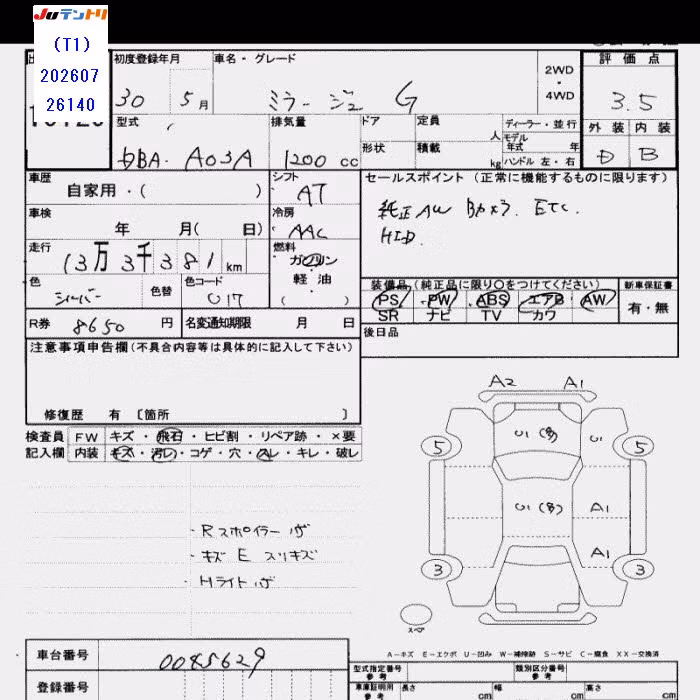 JUテントリ
(T1)
202607
26140
初度登録年月
車名・グレード
30 5月
ミラージュ G
2WD
・
4WD
評価点
3.5
型式
DBA- A03A
排気量
1200 cc
ドア
定員
人
ディーラー・並行
モデル
年式 年
形状
積載
kg
ハンドル 左・右
外装 内装
D B
車歴
自家用・( )
シフト
AT
セールスポイント(正常に機能するものに限ります)
純正AW Bカメラ. ETC.
HID.
車検
年 月( 日)
冷房
AAC
走行
13万3千381km
燃料
ガソリン
・
軽油
( )
色
シルバー
色替
色コード
U17
装備品(純正品に限り○をつけてください)
新車保証書
PS PW ABS エアB AW
SR ナビ TV カワ
有・無
R券 8650 円
名変通知期限 月 日
後日品
注意事項申告欄(不具合内容等は具体的に記入して下さい)
修復歴 有 [箇所 ]
検査員 FW キズ・飛石・ヒビ割・リペア跡・×要
記入欄 内装 キズ・汚レ・コゲ・穴・スレ・キレ・破レ
A2 A1
U1(多) U1
5 5
U1(多) A1
A1
3 3
・Rスポイラー
・キズ E スリキズ
・Hライト
スペア
A－キズ E－エクボ U－凹み W－補修跡 S－サビ C－腐食 XX－交換済
車台番号 0085629
登録番号
型式指定番号
参考
類別区分番号
参考
車庫証明用
参考
長さ cm
幅 cm
高さ cm